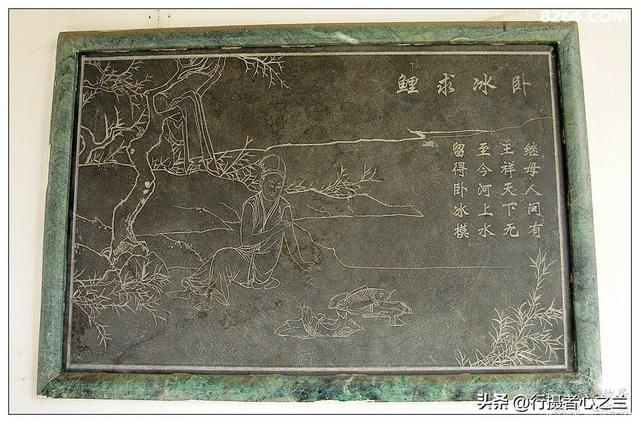 8264.COM
卧冰求鲤
继母人间有
王祥天下无
至今河上水
留得卧冰模
头条 @行摄者心之兰